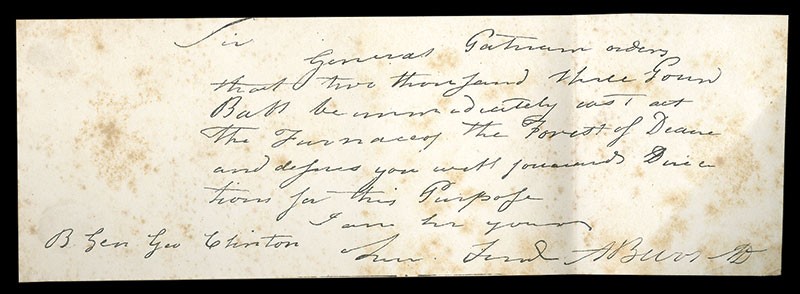 Sir
General Putnam orders
that two thousand three Pound
Ball be immediately cast at
the Furnace of the Forest of Deane
and desires you will forward Direc
tions for this Purpose
I am Sir yours
B. Gen Geo Clinton ABurr AD